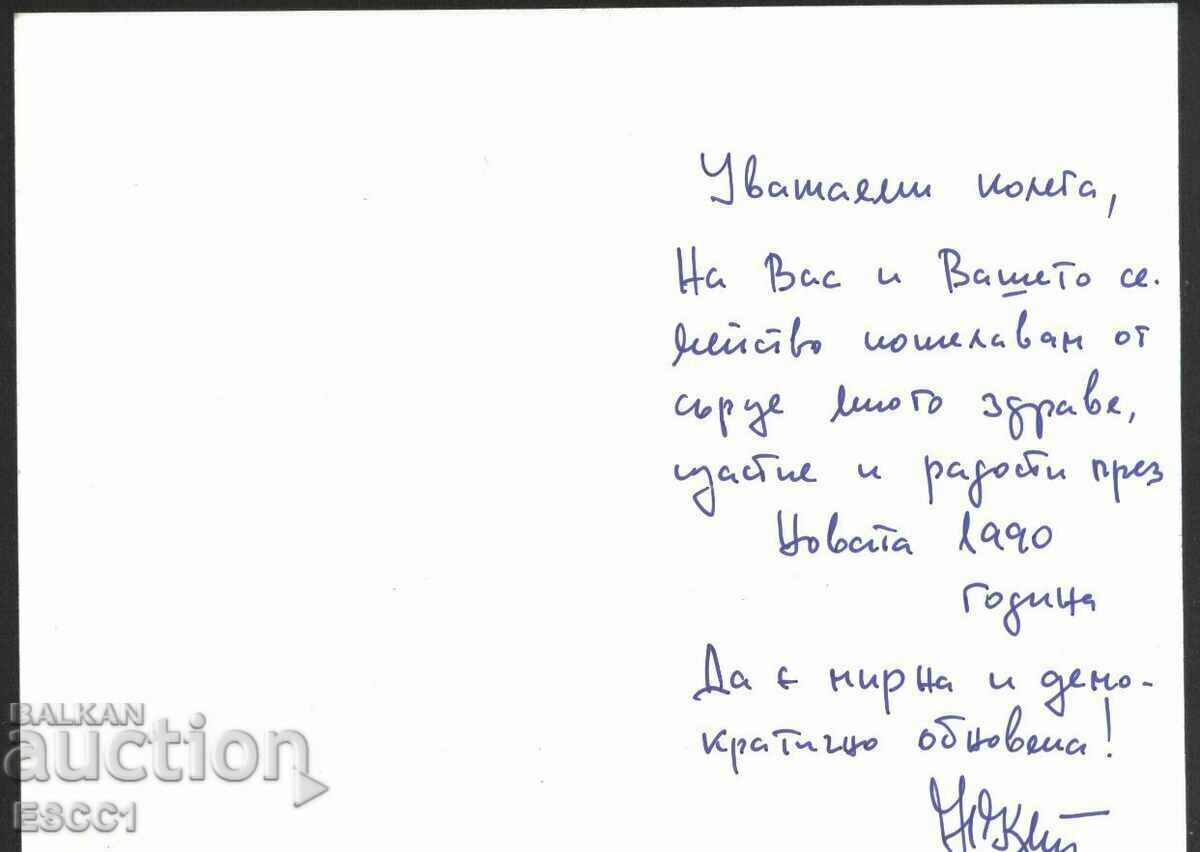 Уважаеми колега,
На Вас и Вашето се-
мейство пожелавам от
сърце много здраве,
щастие и радости през
Новата 1990
година
Да е мирна и демо-
кратично обновена!
BALKAN
auction
ESCC1